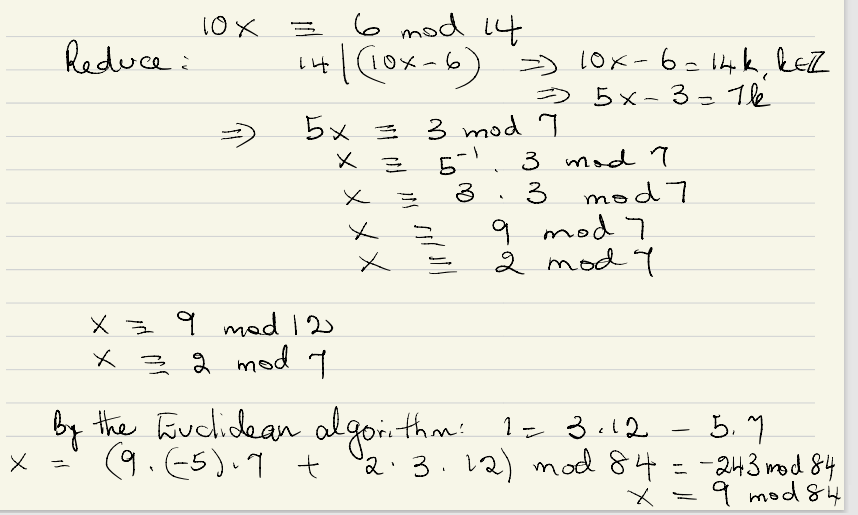 10x ≡ 6 mod 14
Reduce: 14|(10x-6) ⇒ 10x-6=14k, k∈ℤ
⇒ 5x-3=7k
⇒ 5x ≡ 3 mod 7
x ≡ 5⁻¹ . 3 mod 7
x ≡ 3 . 3 mod 7
x ≡ 9 mod 7
x ≡ 2 mod 7
x ≡ 9 mod 12
x ≡ 2 mod 7
By the Euclidean algorithm: 1 = 3.12 - 5.7
x = (9.(-5).7 + 2.3.12) mod 84 = -243 mod 84
x = 9 mod 84